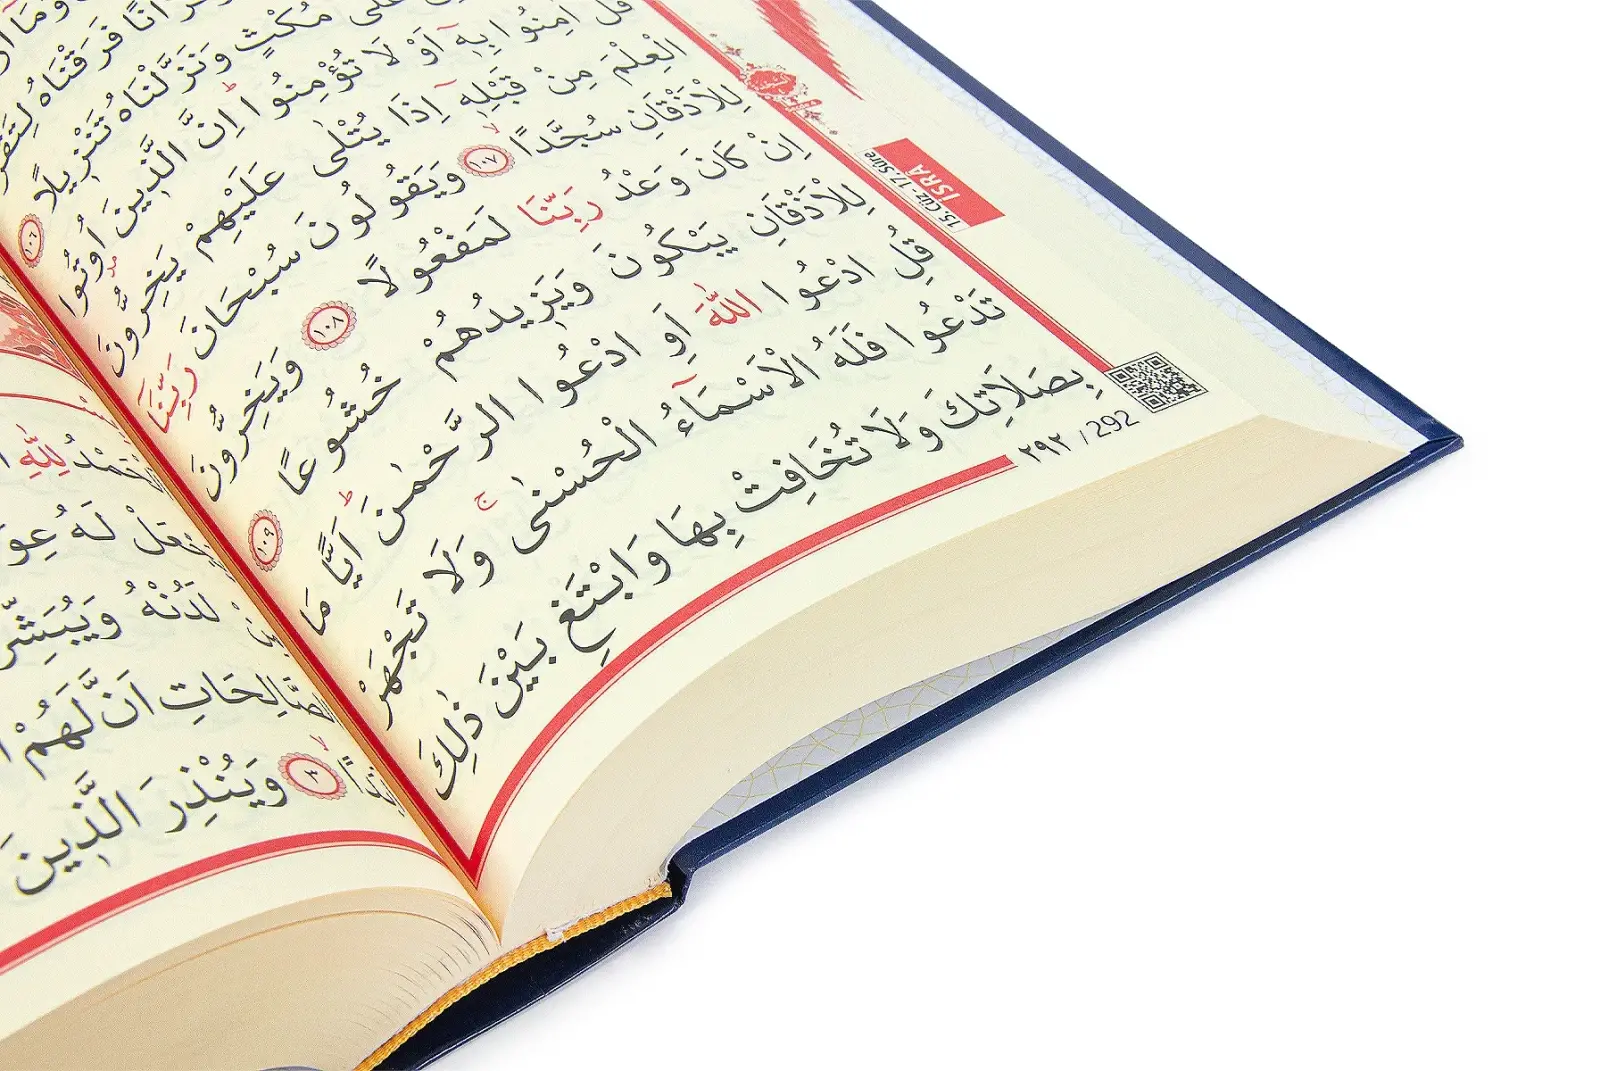 فَرَقْنَاهُ
عَلٰى مُكْثٍ وَنَزَّلْنَاهُ تَنْزٖيلًا ١٠٦
قُلْ اٰمِنُوا بِهٖٓ اَوْ لَا تُؤْمِنُواۜ اِنَّ الَّذٖينَ اُو۫تُوا
الْعِلْمَ مِنْ قَبْلِهٖٓ اِذَا يُتْلٰى عَلَيْهِمْ يَخِرُّونَ
لِلْاَذْقَانِ سُجَّدًاۙ ١٠٧ وَيَقُولُونَ سُبْحَانَ رَبِّنَٓا
اِنْ كَانَ وَعْدُ رَبِّنَا لَمَفْعُولًا ١٠٨ وَيَخِرُّونَ
لِلْاَذْقَانِ يَبْكُونَ وَيَزٖيدُهُمْ خُشُوعًا ١٠٩
قُلِ ادْعُوا اللّٰهَ اَوِ ادْعُوا الرَّحْمٰنَۜ اَيًّا مَا
تَدْعُوا فَلَهُ الْاَسْمَٓاءُ الْحُسْنٰىۚ وَلَا تَجْهَرْ
بِصَلَاتِكَ وَلَا تُخَافِتْ بِهَا وَابْتَغِ بَيْنَ ذٰلِكَ
İSRÂ
15. Cüz - 17. Sûre
٢٩٢ / 292
لِلّٰهِ
لَهُ
لَدُنْهُ
اَنَّ لَهُمْ
٢ وَيُنْذِرَ الَّذٖينَ